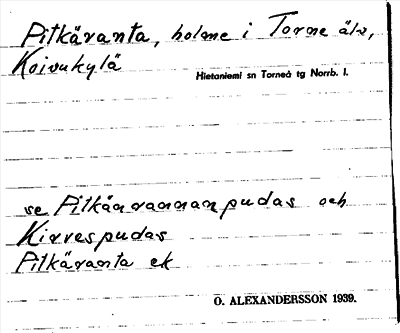 Pitkäranta, holme i Torne älv,
Koivukylä
Hietaniemi sn Torneå tg Norrb. l.
se Pitkänrannanpudas och
Kirvespudas
Pitkäranta ek
O. ALEXANDERSSON 1939.